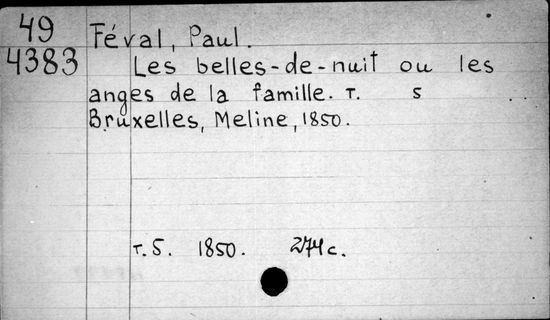 49
4383
Féval, Paul.
Les belles-de-nuit ou les
anges de la famille. т. 5
Bruxelles, Meline, 1850.
т. 5. 1850. 274 с.